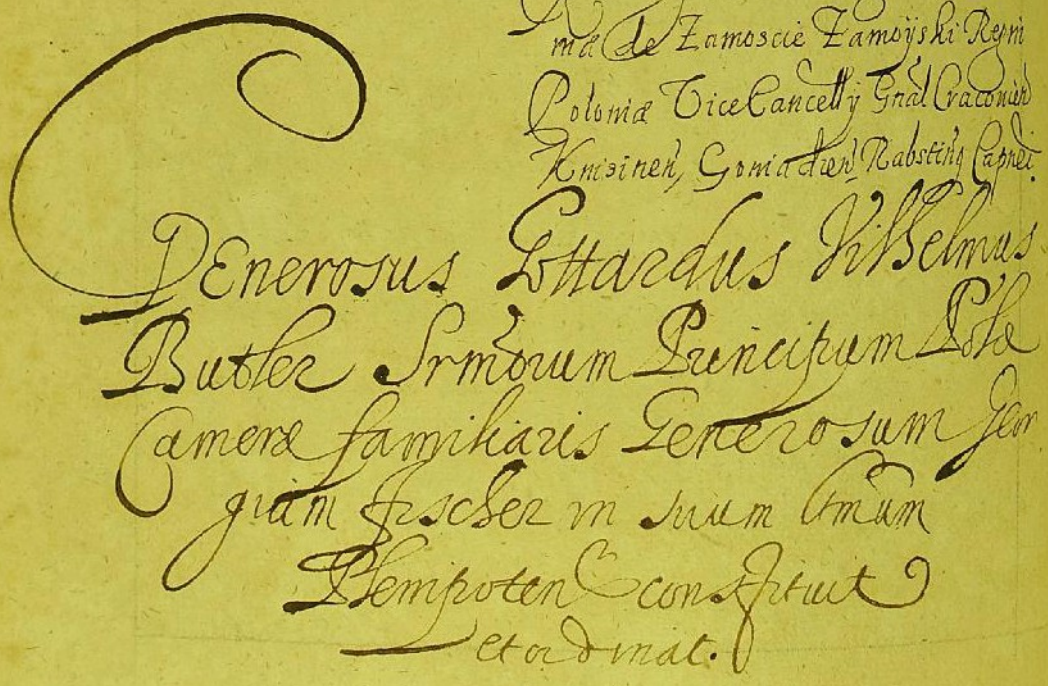 mæ de Zamoscie Zamoÿski Regni
Poloniæ Vice Cancellÿ Gnãl Cracovień
Kmsineñ, Goniadzeñ Rabstinq Capnei.
GEnerosus Gottardus Vilhelmus
Butler Srmorum Principum Polæ
Cameræ familiaris Generosum Geor
gium fischer in suum Omum
Plenipoten constituit
et ordinat.